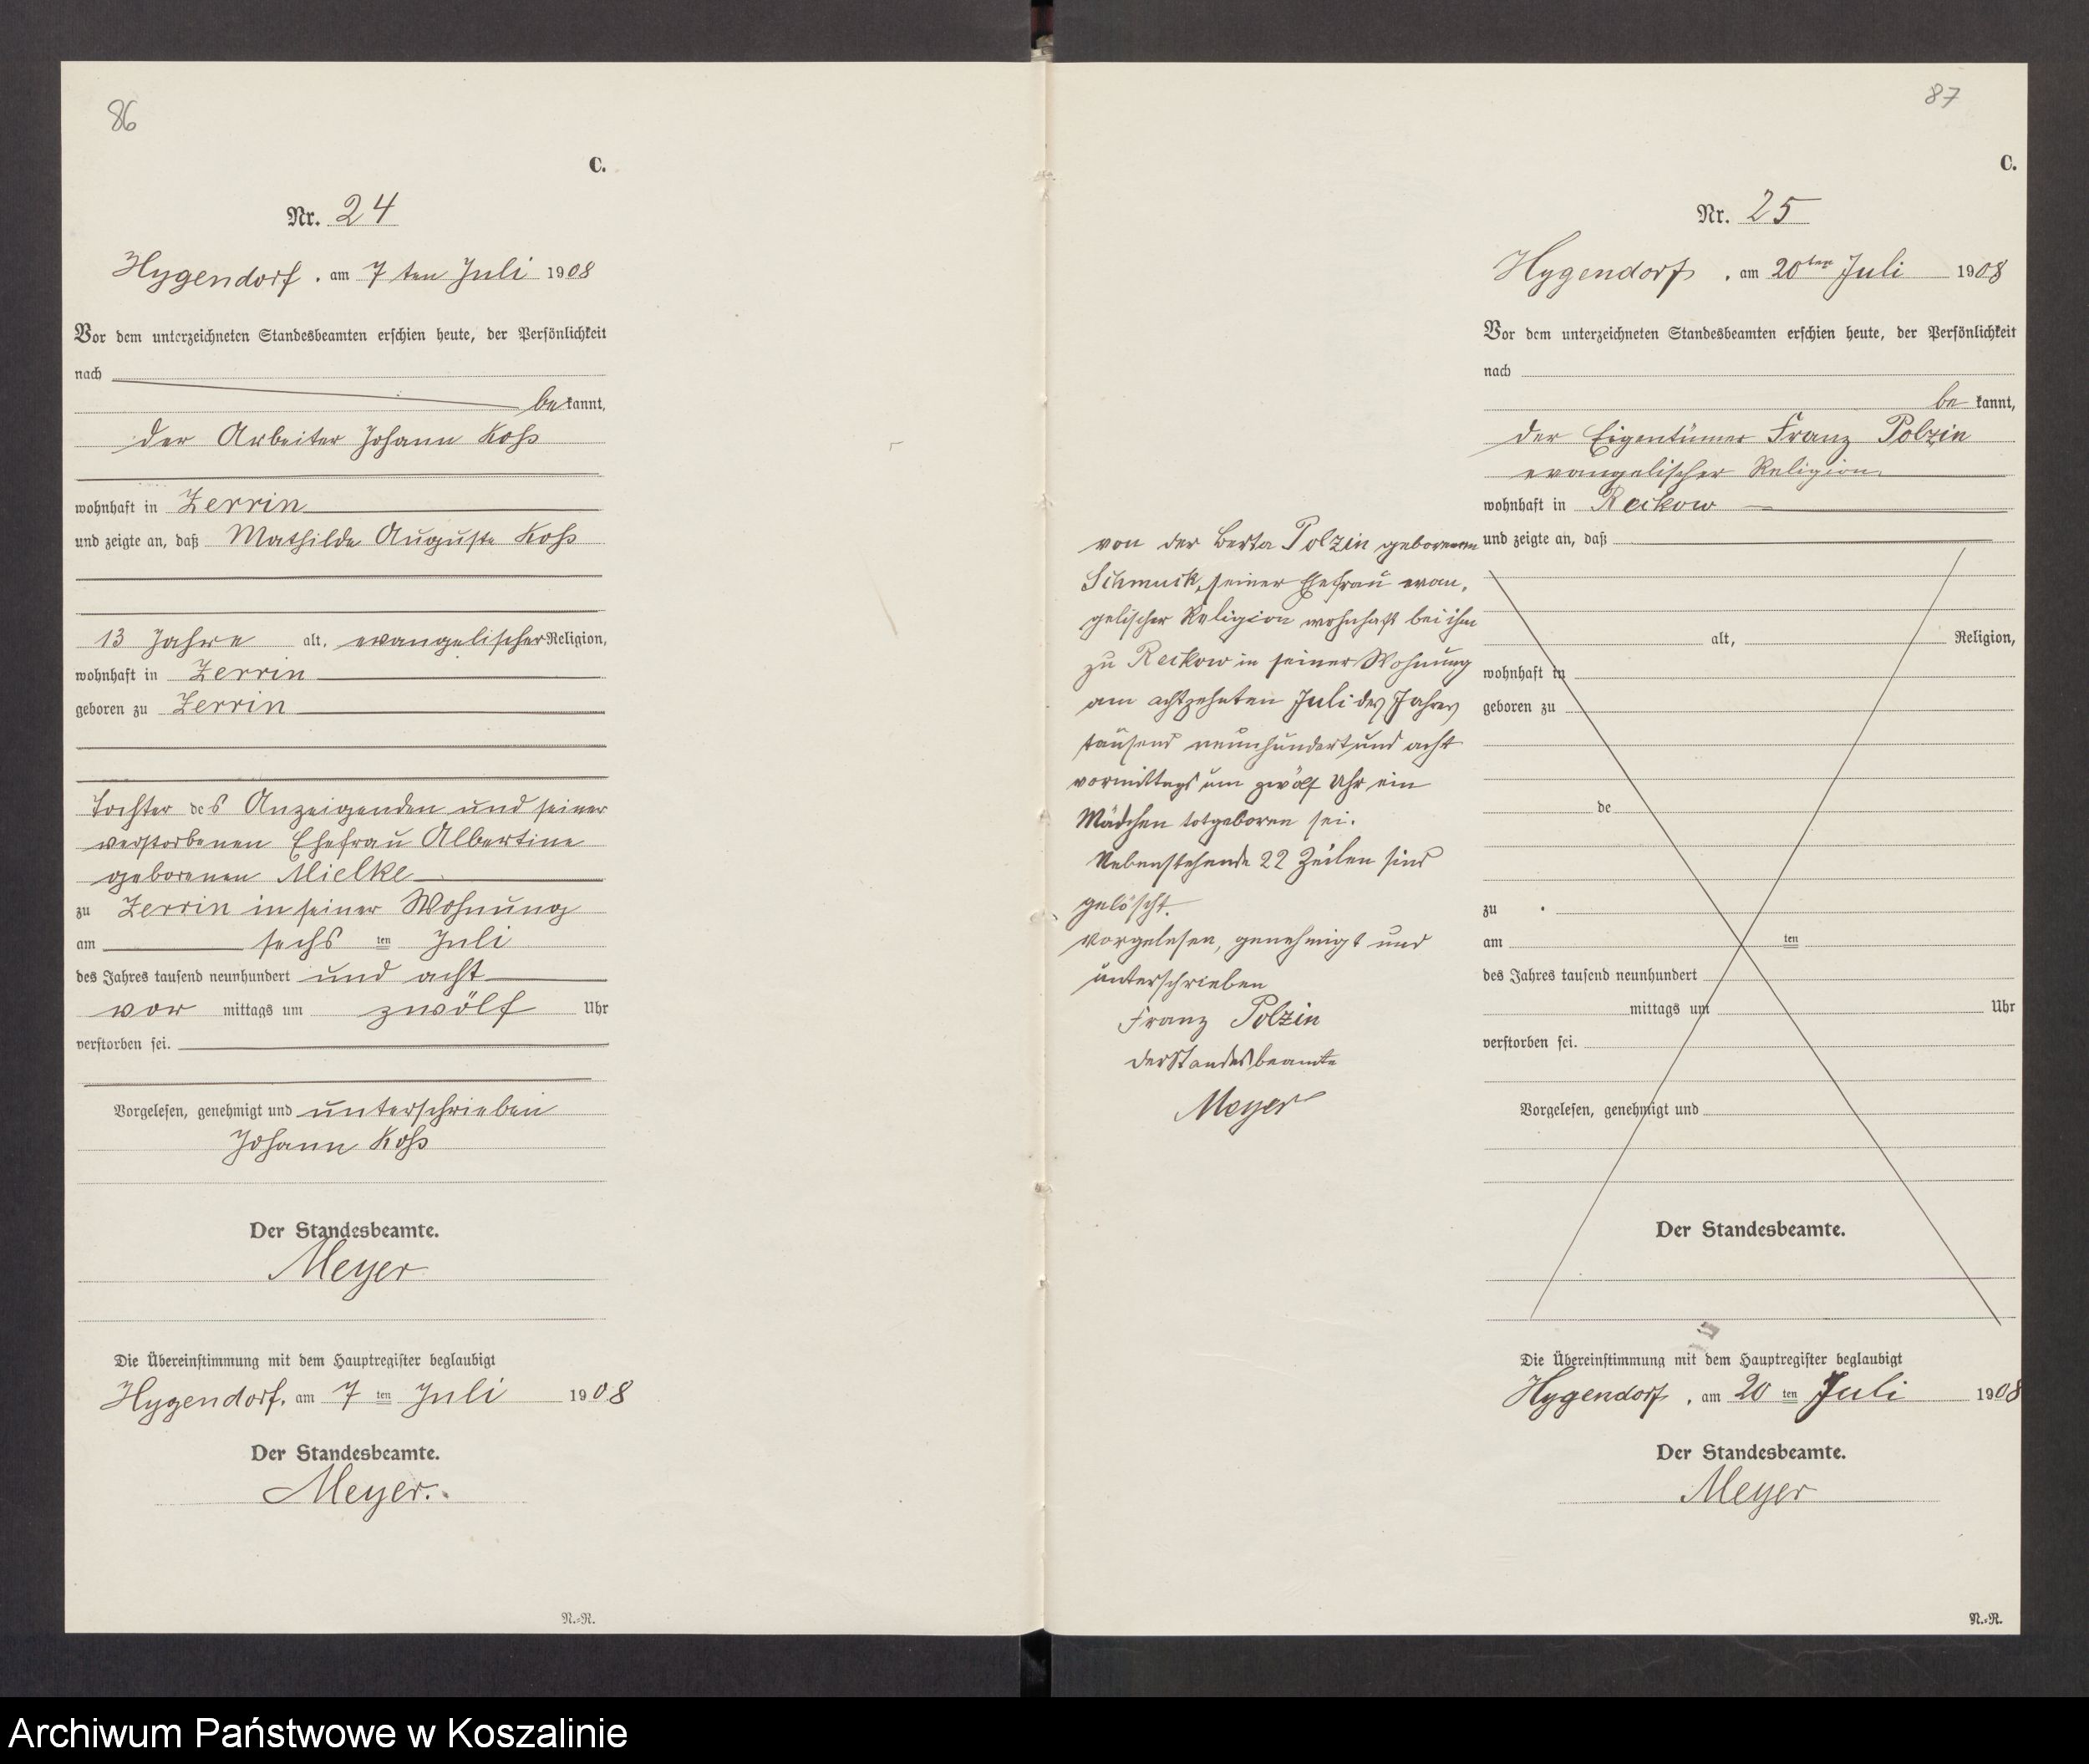 86
C.
Nr. 24
Hygendorf. am 7 ten Juli 1908
Vor dem unterzeichneten Standesbeamten erschien heute, der Persönlichkeit
nach
bekannt,
der Arbeiter Johann Koß
wohnhaft in Zerrin
und zeigte an, daß Mathilde Auguste Koß
13 Jahre alt, evangelischer Religion,
wohnhaft in Zerrin
geboren zu Zerrin
Tochter des Anzeigenden und seiner
verstorbenen Ehefrau Albertine
geborenen Mielke
zu Zerrin in seiner Wohnung
am sechs ten Juli
des Jahres tausend neunhundert und acht
vor mittags um zwölf Uhr
verstorben sei.
Vorgelesen, genehmigt und unterschrieben
Johann Koß
Der Standesbeamte.
Meyer
Die Übereinstimmung mit dem Hauptregister beglaubigt
Hygendorf. am 7 ten Juli 1908
Der Standesbeamte.
Meyer.
N.=R.
87
C.
Nr. 25
Hygendorf, am 20ten Juli 1908
Vor dem unterzeichneten Standesbeamten erschien heute, der Persönlichkeit
nach
be kannt,
der Eigentümer Franz Polzin
evangelischer Religion
wohnhaft in Reckow
und zeigte an, daß
alt, Religion,
wohnhaft in
geboren zu
de
zu
am ten
des Jahres tausend neunhundert
mittags um Uhr
verstorben sei.
Vorgelesen, genehmigt und
Der Standesbeamte.
von der Berta Polzin geborenen
Schmuck, seiner Ehefrau evan,
gelischer Religion wohnhaft bei ihm
zu Reckow in seiner Wohnung
am achtzehnten Juli des Jahres
tausend neunhundert und acht
vormittags um zwölf Uhr ein
Mädchen totgeboren sei.
Nebenstehende 22 Zeilen sind
gelöscht.
Vorgelesen, genehmigt und
unterschrieben
Franz Polzin
der Standesbeamte
Meyer
Die Übereinstimmung mit dem Hauptregister beglaubigt
Hygendorf, am 20 ten Juli 1908
Der Standesbeamte.
Meyer
N.=R.
Archiwum Państwowe w Koszalinie